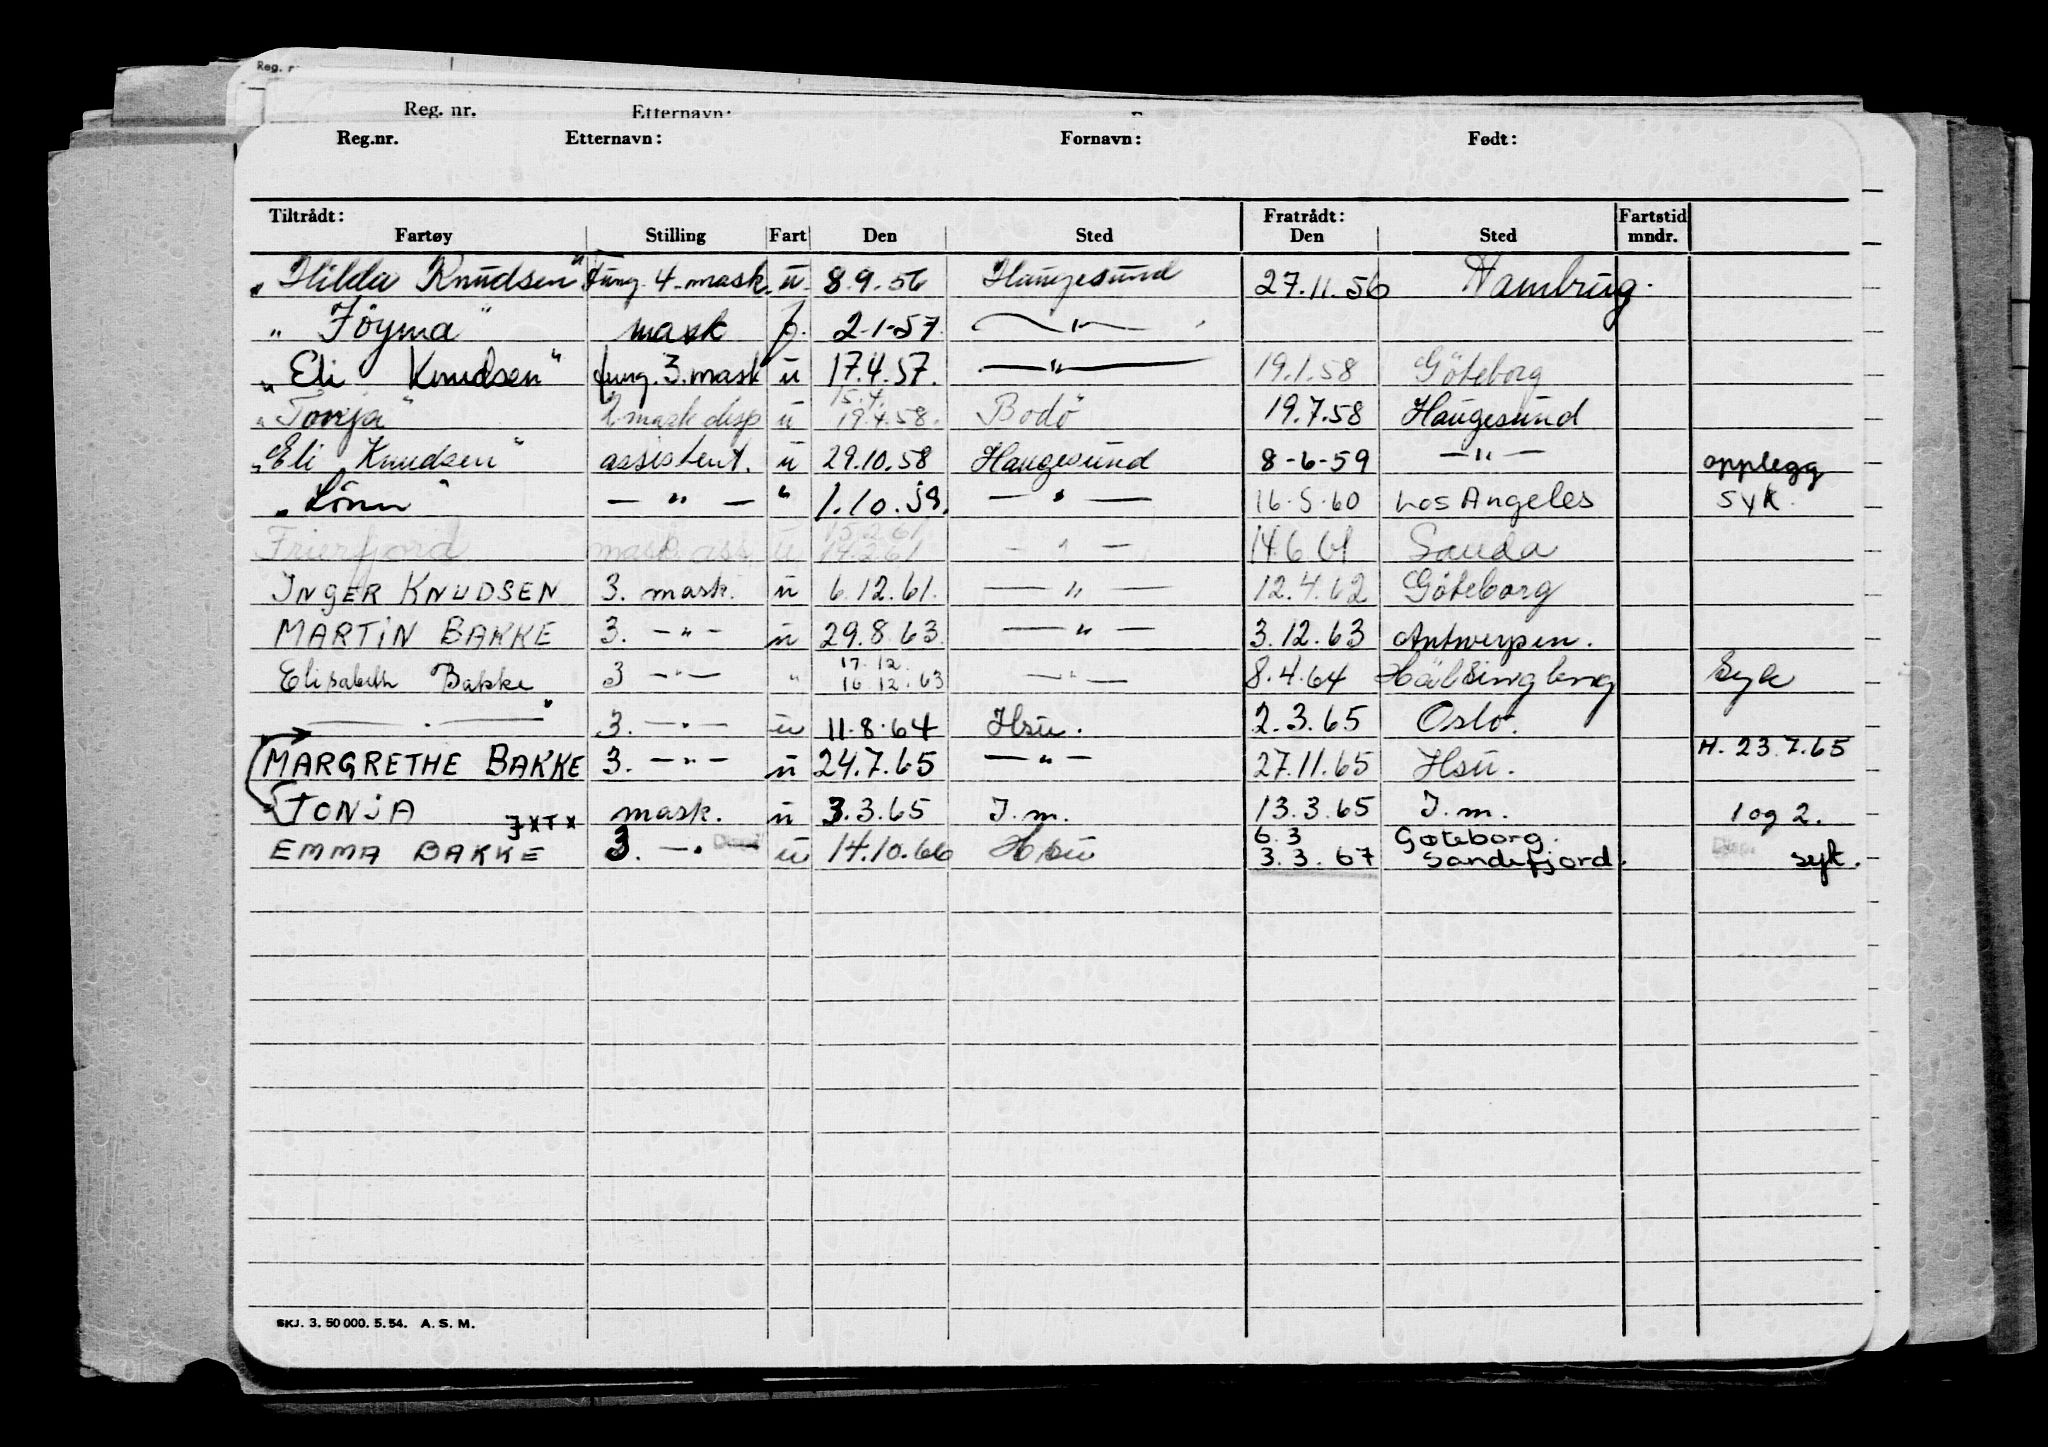 Reg.
Reg. nr. Etternavn:
Reg.nr. Etternavn: Fornavn: Født:
Tiltrådt: Fratrådt: Fartstid
Fartøy Stilling Fart Den Sted Den Sted mndr.
„Hilda Knudsen" fung. 4. mask. u. 8.9.56 Haugesund 27.11.56 Hamburg.
„ Föyma " mask f. 2-1-57. — " —
„ Eli Knudsen " fung. 3. mask u 17.4.57. — " — 19.1.58 Göteborg
15.4.
„Tonja" 2 mask disp u 19.4.58. Bodö 19.7.58 Haugesund
„Eli Knudsen " assistent. u 29.10.58 Haugesund 8-6-59 — " — opplegg
„Lönn " — " — " 1.10.59. — " — 16.5.60 Los Angeles syk.
15.2.61
Frierfjord mask. ass u 14.2.61 — " — 14.6.61 Sauda
INGER KNUDSEN 3. mask. u 6.12.61. — " — 12.4.62 Göteborg
MARTiN BAKKE 3. — " — u 29.8.63. — " — 3.12.63 Antwerpen.
17.12.
Elisabeth Bakke 3 — " — " 16.12.63 — " — 8.4.64 Hälsingborg Syk
— " — 3. — " — u 11.8.64 Hsu. 2.3.65 Oslo.
MARGRETHE BAKKE 3. — " — u 24.7.65 — " — 27.11.65 Hsu. H. 23.7.65
TONjA JXTX mask. u 3.3.65 I.m. 13.3.65 I.m. 1 og 2.
6.3 Göteborg.
EMMA BAKKE 3. — " u 14.10.66 Hsu 3.3.67 Sandefjord. syk.
SKJ. 3. 50 000. 5. 54. A. S. M.